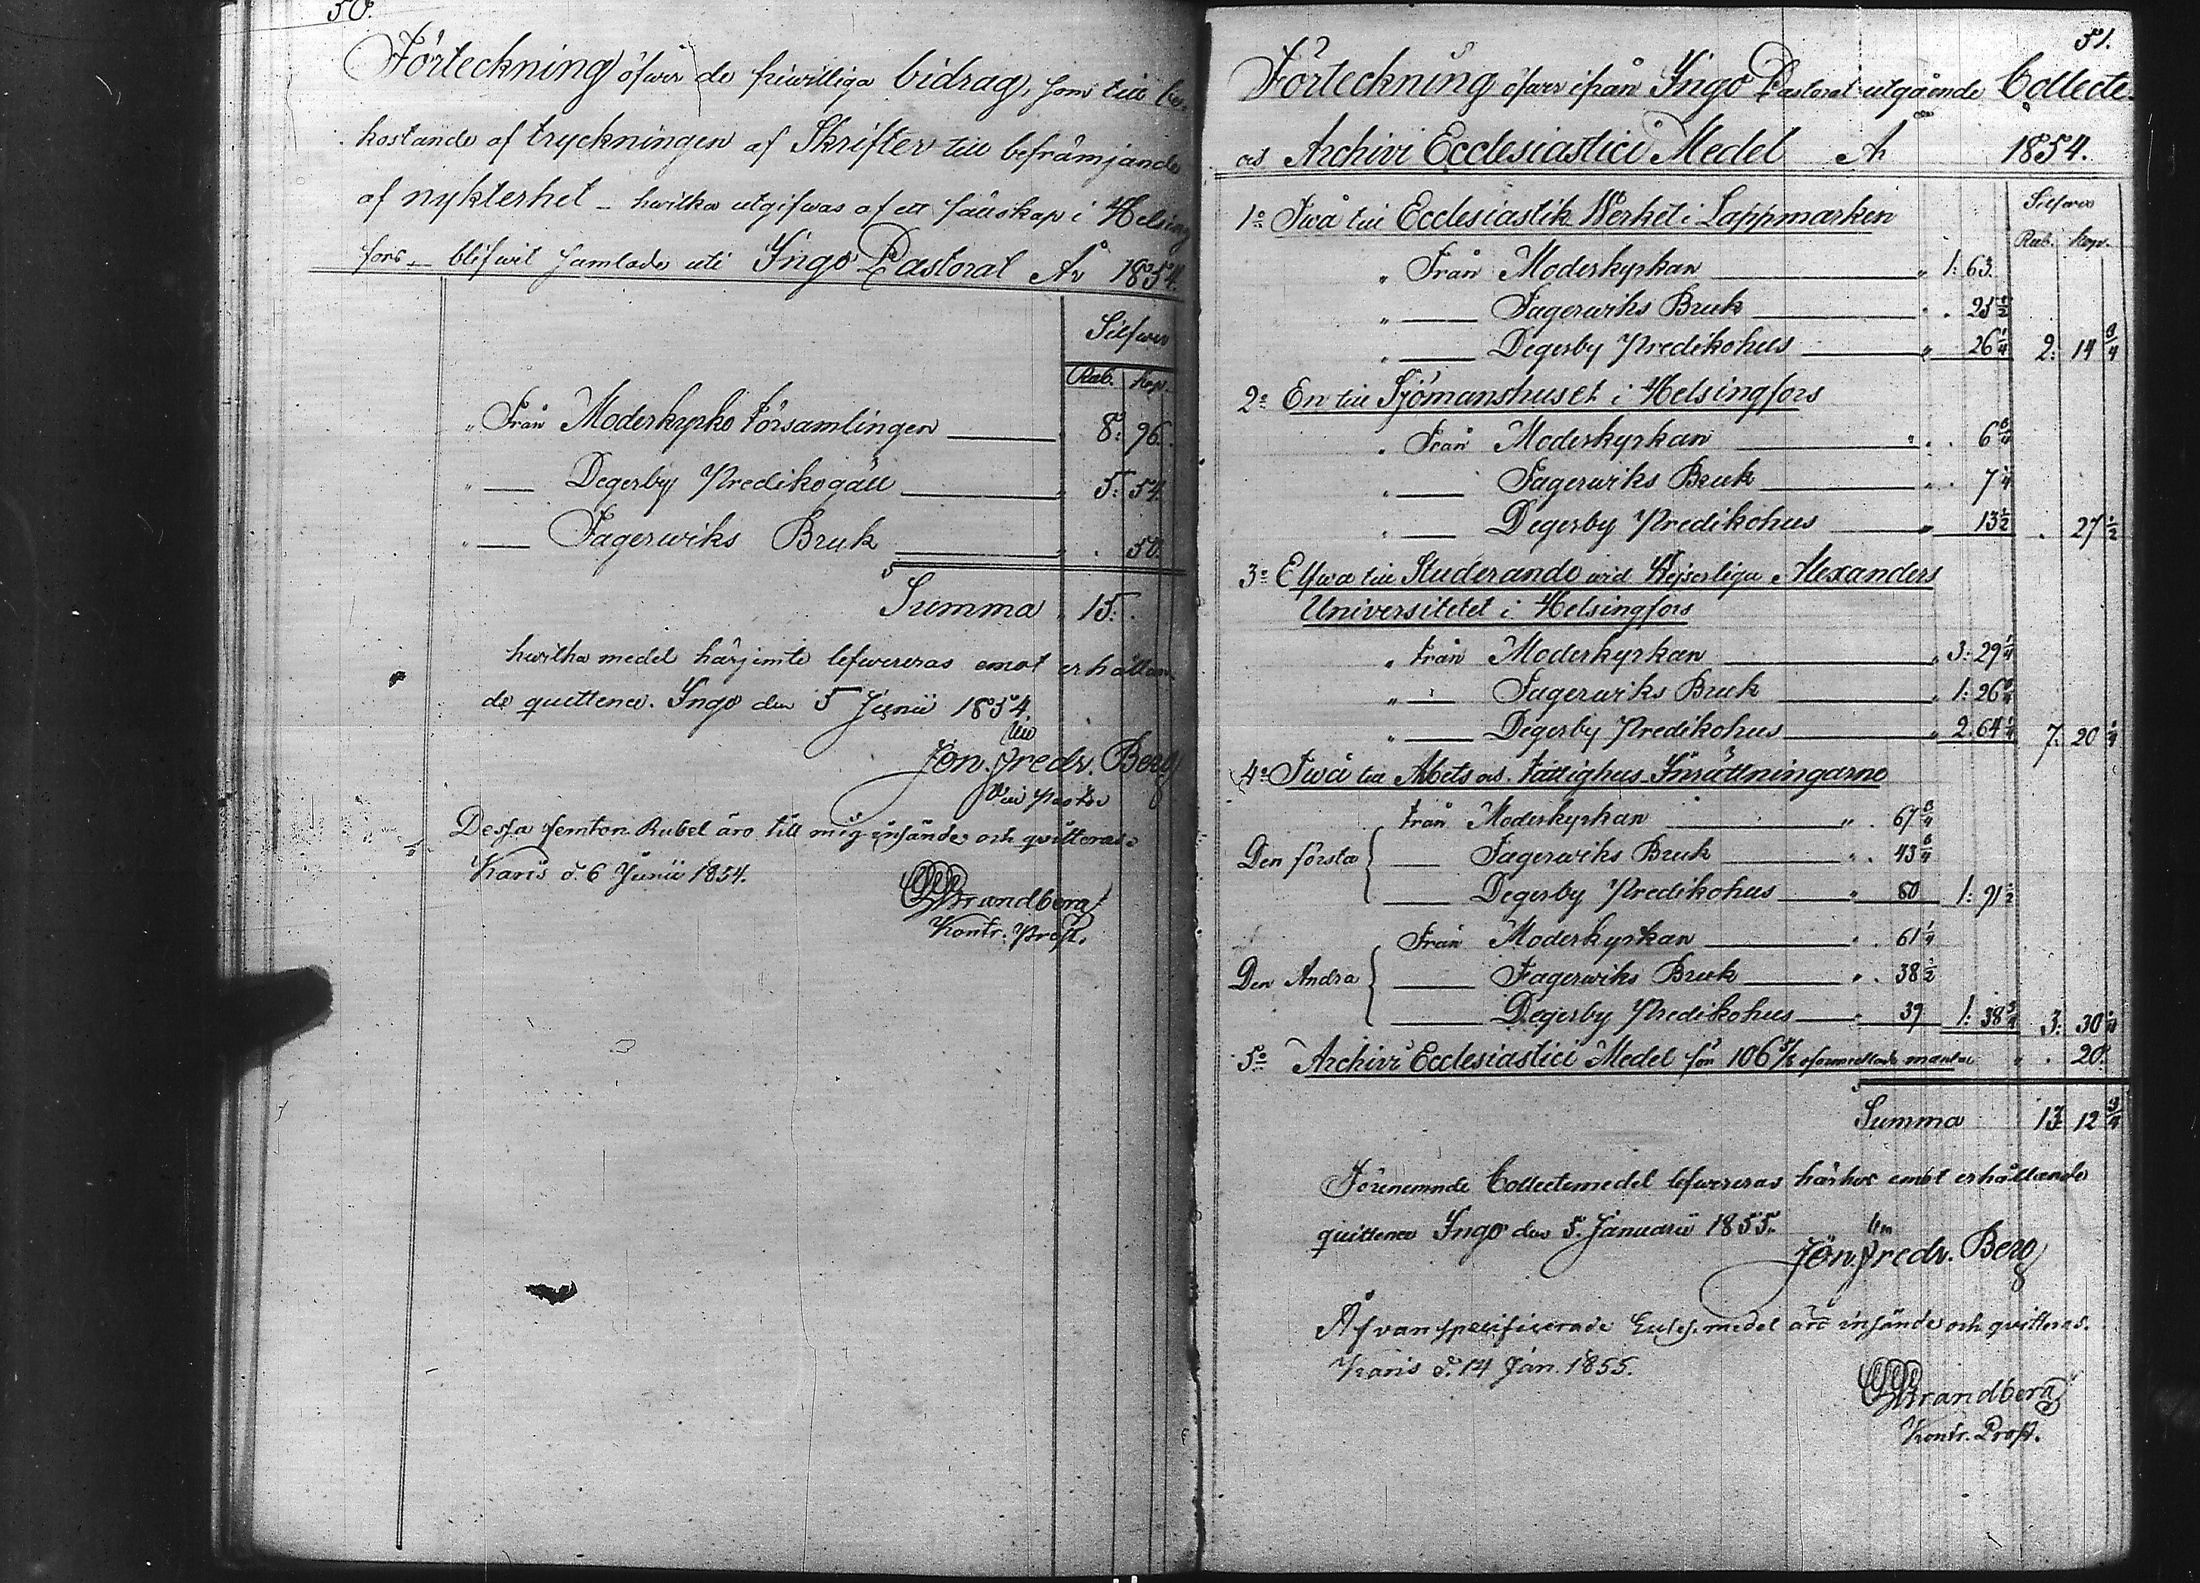 50.
Förteckning öfwer de friwilliga bidrag, som till be-
kostande af tryckningen af Skrifter till befrämjande
af nykterhet – hwilka utgifwas af ett sällskap i Helsing
fors – blifwit samlade uti Ingo Pastorat År 1854.
Silfwer
Rub. Kop.
" Från Moderkyrko Församlingen " 8: 96.
" — Degerby Predikogäll " 5: 54.
" — Fagerwiks Bruk " . 50.
Summa " 15. .
hwilka medel härjemte lefwereras emot erhållan-
de quittence. Ingo den 5 Junii 1854.
Jon. Fredr. Berg
Vice Pastor
Dessa femton Rubel äro till mig insände och qvitteras.
Karis d. 6 Junii 1854.
Strandberg
Kontr. Prost.
51.
Förteckning öfwer ifrån Ingo Pastorat utgående Collecte-
och Archivi Ecclesiastici Medel År 1854.
Silfwer
Rub. Kop.
1o Twå till Ecclesiastik Werket i Lappmarken
" Från Moderkyrkan " 1: 63.
" — Fagerwiks Bruk " . 25 1/2
" — Degerby Predikohus " 26 1/4 2: 14 3/4
2o En till Sjömanshuset i Helsingfors
" Från Moderkyrkan " . 6 3/4
" — Fagerwiks Bruk " . 7 1/4
" — Degerby Predikohus " 13 1/2 . 27 1/2
3o Elfwa till Studerande wid Kejserliga Alexanders
Universitetet i Helsingfors
" Från Moderkyrkan " 3: 29 1/4
" — Fagerwiks Bruk " 1: 26 3/4
" — Degerby Predikohus " 2. 64 1/4 7. 20 1/4
4o Twå till Arbets och Fattighus Inrättningarne
Från Moderkyrkan " . 67 3/4
Den första { — Fagerwiks Bruk " . 43 3/4
— Degerby Predikohus " 80 1: 91 1/2
Från Moderkyrkan " . 61 1/4
Den Andra { — Fagerwiks Bruk " . 38 1/2
— Degerby Predikohus " 39 1: 38 3/4 3: 30 1/4
5o Archivi Ecclesiastici Medel för 106 5/8 oförmedlade mantal " . 20.
Summa 13: 12 3/4
Förenemnde Collectemedel lefwereras härhos emot erhållande
quittence Ingo den 5. Januarii 1855.
Jon. Fredr. Berg
Åfvanspecificerade medel äro insände och qvitteras.
Karis d. 14 Jan. 1855.
Strandberg
Kontr. Prost.